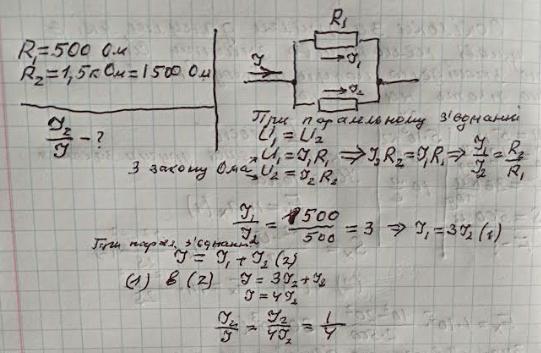 R₁=500 Ом
R₂=1,5кОм=1500 Ом
I₂/I - ?
R₁
I
I₁
I₂
При паралельному з'єднанні
U₁=U₂
З закону Ома U₁=I₁R₁ ⇒ I₂R₂=I₁R₁ ⇒ I₁/I₂=R₂/R₁
U₂=I₂R₂
I₁/I₂=1500/500=3 ⇒ I₁=3I₂(1)
При парал. з'єднанні
I=I₁+I₂(2)
(1) в (2) I=3I₂+I₂
I=4I₂
I₂/I=I₂/4I₂=1/4